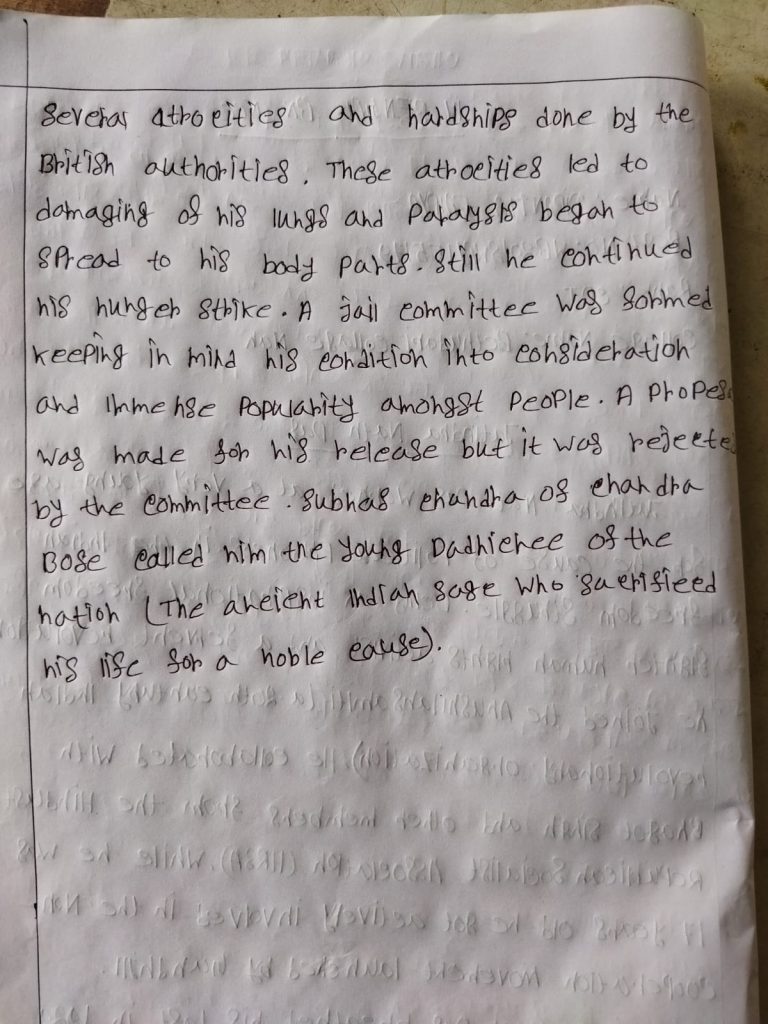 Several atrocities and hardships done by the
British authorities. These atrocities led to
damaging of his lungs and Paralysis began to
spread to his body parts. Still he continued
his hunger strike. A jail committee was formed
keeping in mind his condition into consideration
and immense popularity amongst people. A Propos
was made for his release but it was rejecte
by the committee. Subhas chandra of chandra
Bose called him the young Dadhichee of the
nation (The ancient Indian sage who sacrificed
his life for a noble cause).